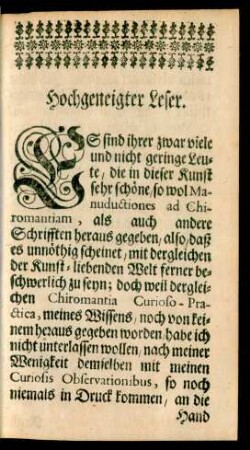 Hochgeneigter Leser.
ES sind ihrer zwar viele
und nicht geringe Leu-
te / die in dieser Kunst
sehr schöne / so wol Ma-
nuductiones ad Chi-
romantiam, als auch andere
Schrifften heraus gegeben / also / daß
es unnöthig scheinet / mit dergleichen
der Kunst-liebenden Welt ferner be-
schwerlich zu seyn; doch weil derglei-
chen Chiromantia Curioso-Pra-
ctica, meines Wissens / noch von kei-
nem heraus gegeben worden / habe ich
nicht unterlassen wollen / nach meiner
Wenigkeit demselben mit meinen
Curiosis Observationibus, so noch
niemals in Druck kommen / an die
Hand